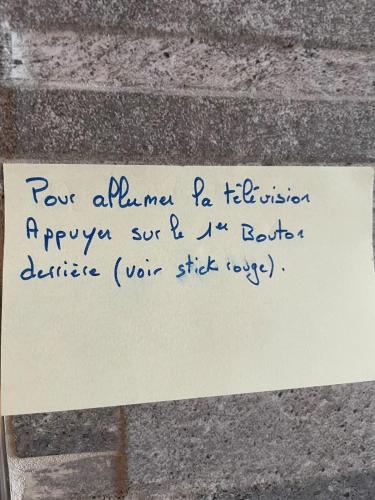 Pour allumer la télévision
Appuyer sur le 1er Bouton
derrière (voir stick rouge).